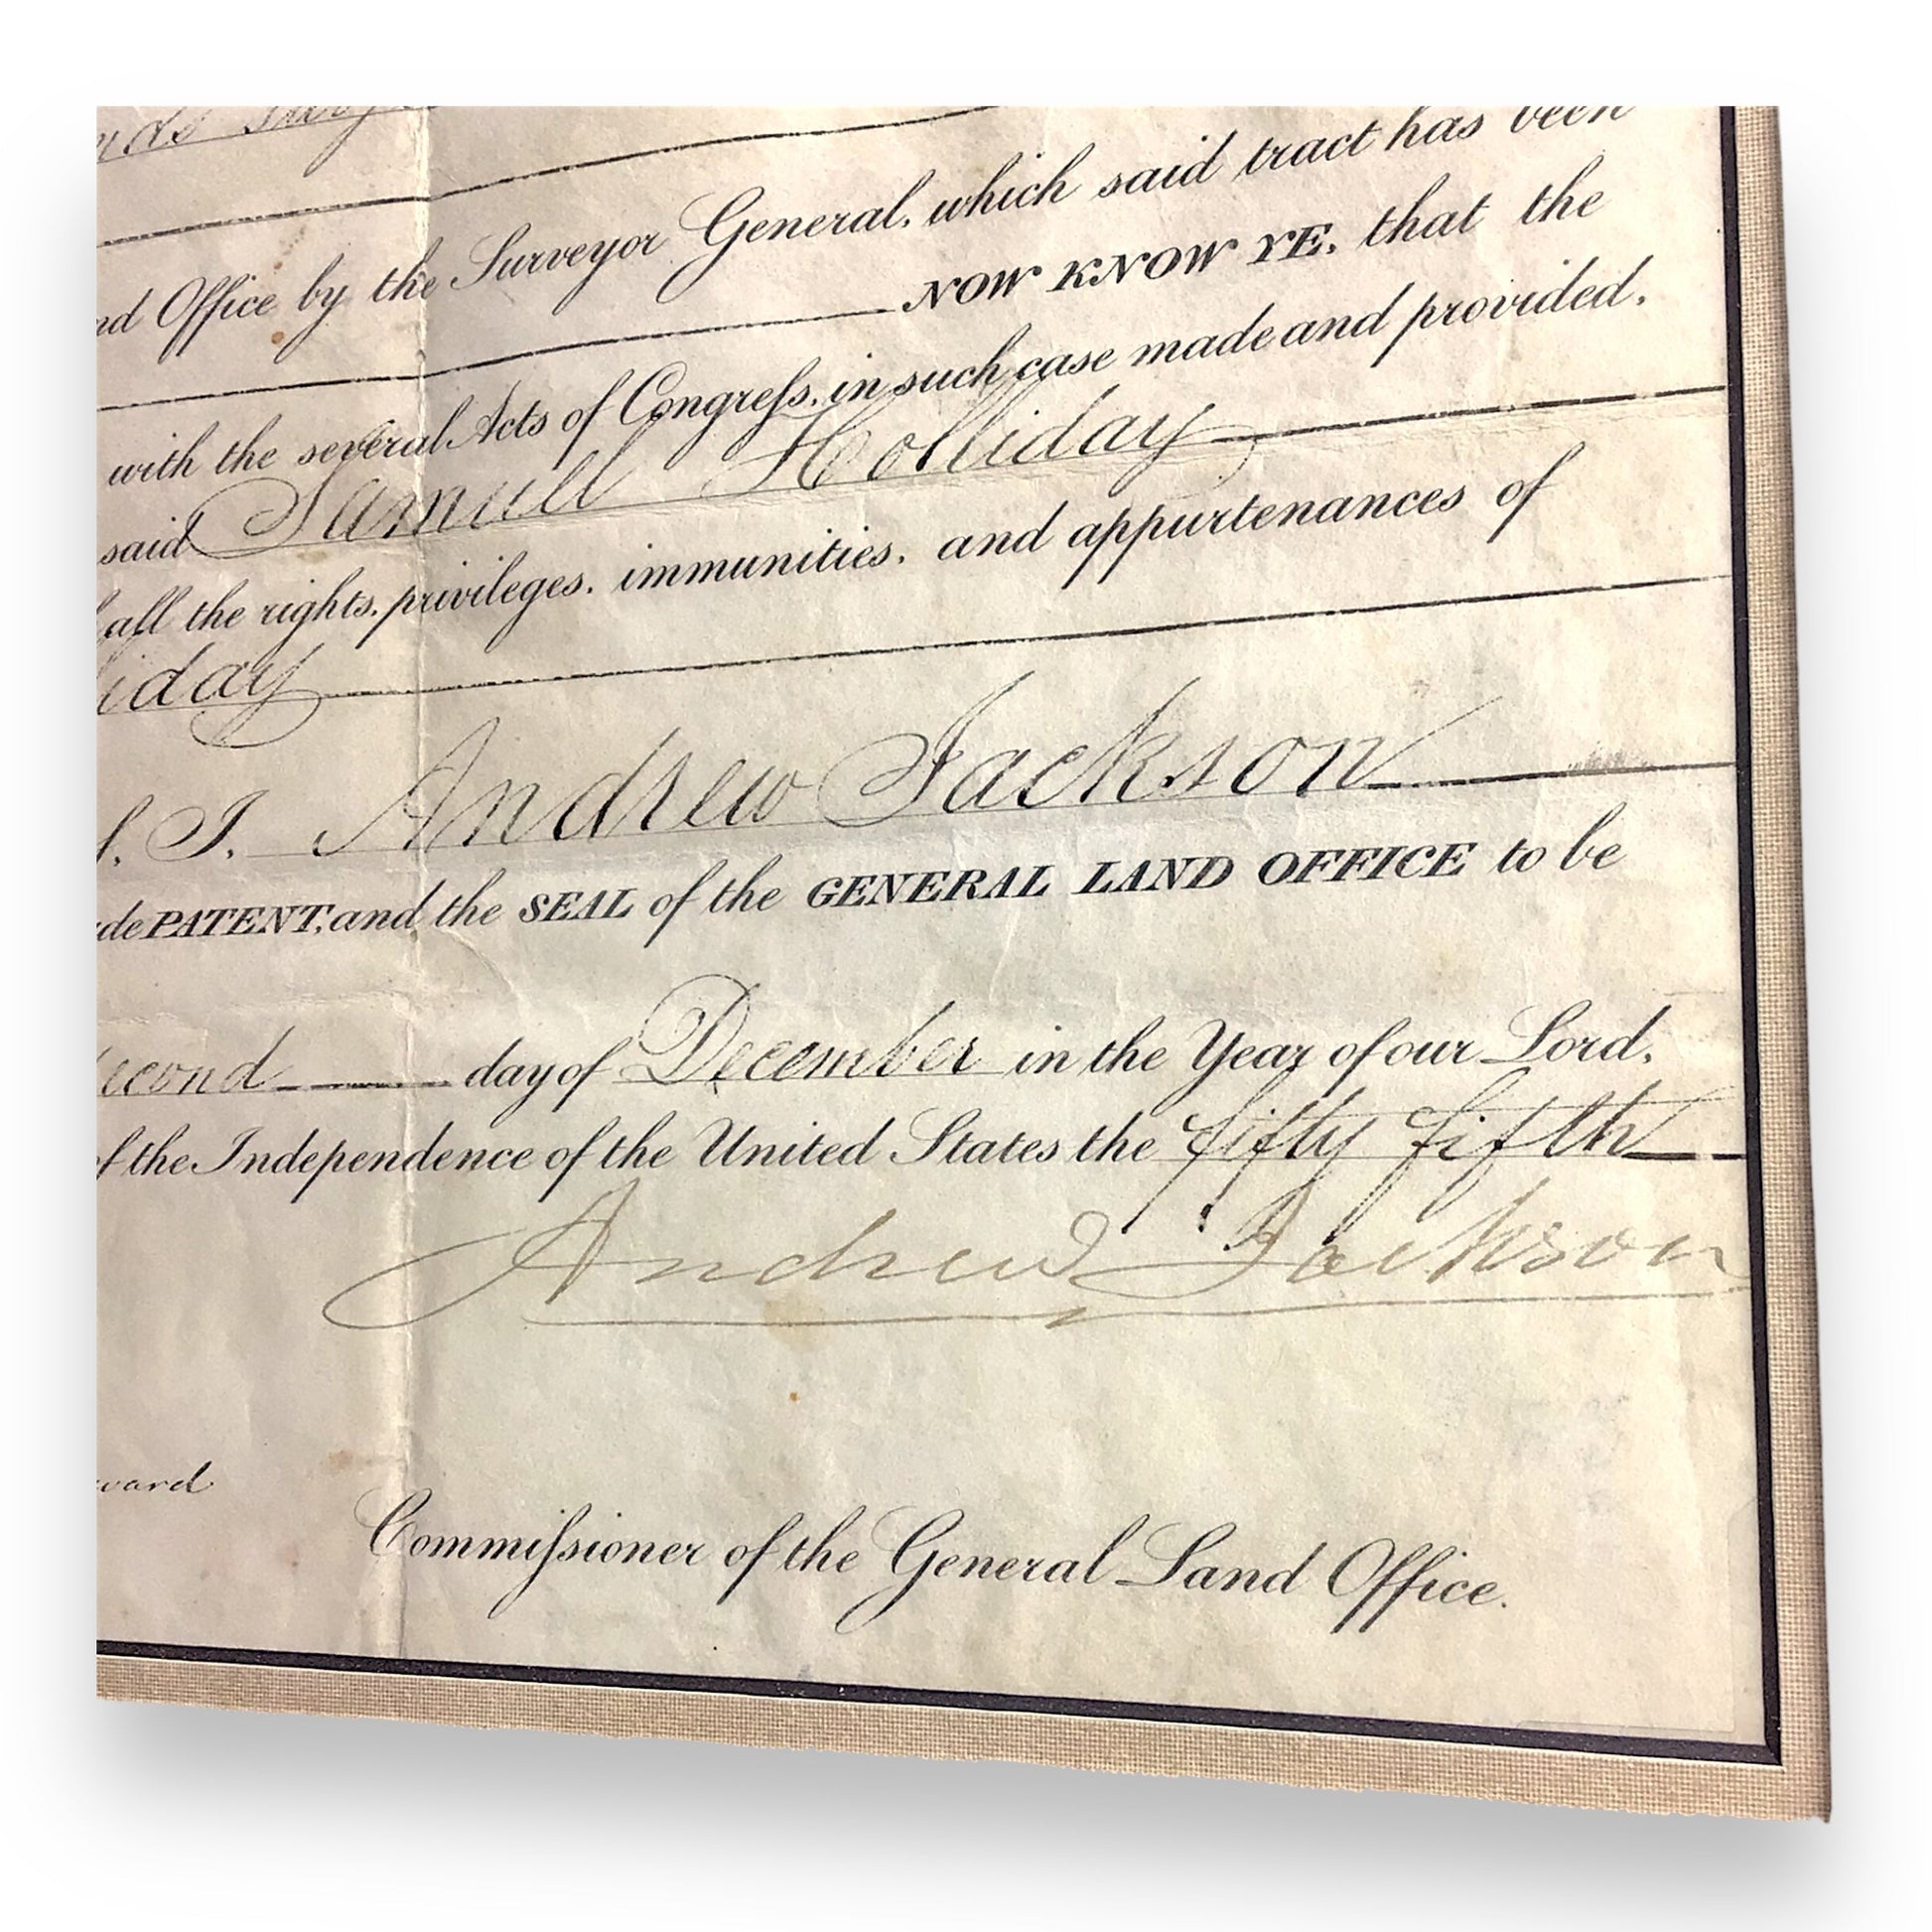 nd Office by the Surveyor General, which said tract has been
NOW KNOW YE, that the
with the several Acts of Congreſs, in such case made and provided,
said Samuel Holliday
all the rights, privileges, immunities, and appurtenances of
iday
I, Andrew Jackson
de PATENT, and the SEAL of the GENERAL LAND OFFICE to be
econd day of December in the Year of our Lord,
of the Independence of the United States the fifty fifth
Andrew Jackson
ward
Commiſsioner of the General Land Office.